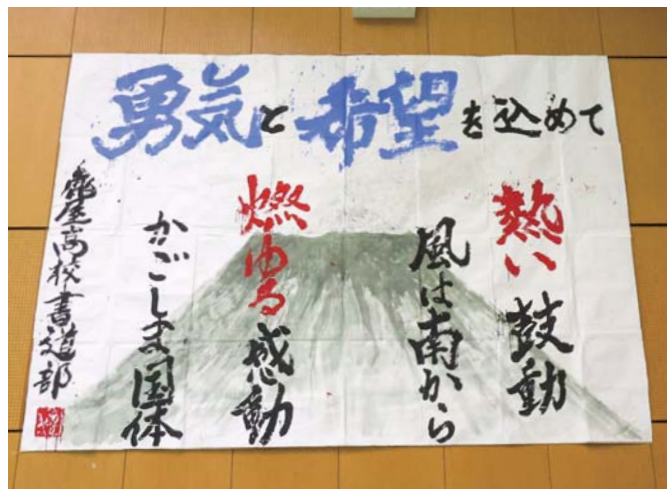 勇気と希望を込めて
熱い鼓動
風は南から
燃ゆる感動
かごしま国体
鹿屋高校書道部